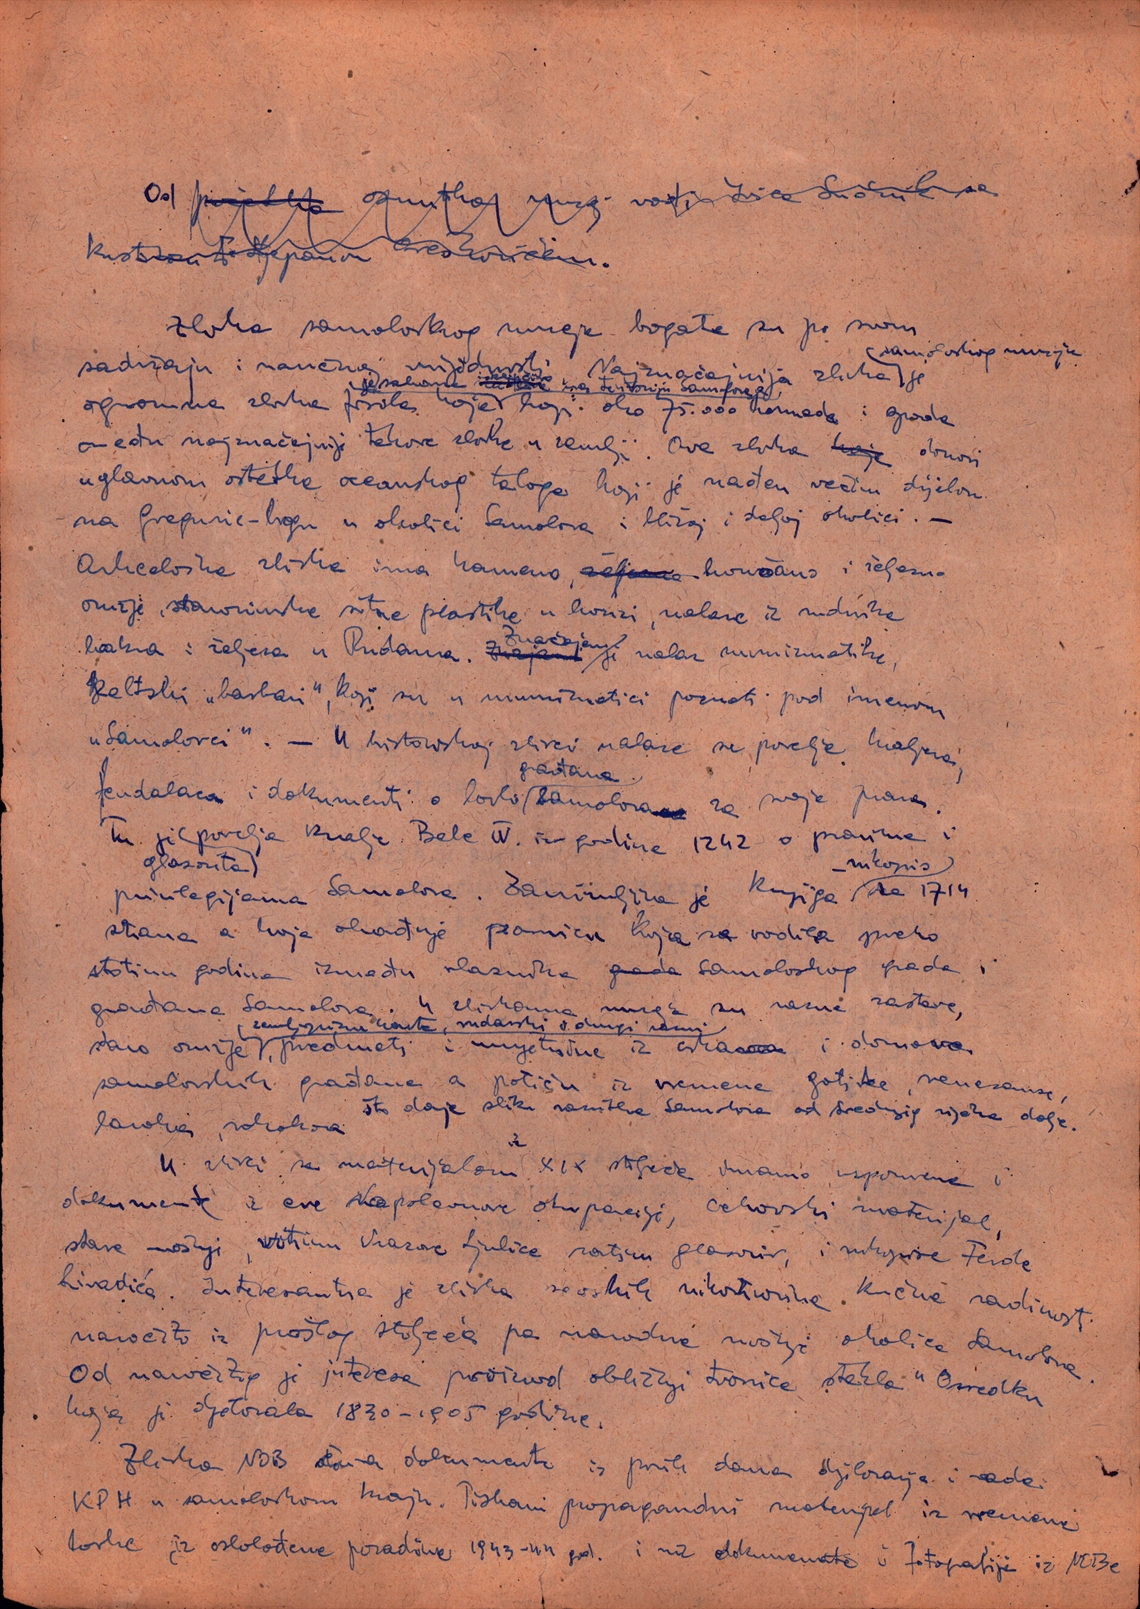 Od projekta osnutka muzej vodi Ivica Sudnik sa
kustosom Stjepanom
Zbirke samoborskog muzeja bogate su po svom
sadržaju i naučnoj vrijednosti. Najznačajnija zbirka samoborskog muzeja je
ogromna zbirka fosila koje je sakupio na teritoriju Samobora, broji oko 75.000 komada i spada
među najznačajnije takove zbirke u zemlji. Ova zbirka koje donosi
uglavnom ostatke oceanskog taloga koji je nađen većim dijelom
na Gregurić-bregu u okolici Samobora i bližoj i daljoj okolici. —
Arheološka zbirka ima kameno, željezno brončano i željezno
oružje, starorimske sitne plastike u bronzi, nalaze iz rudnika
bakra i željeza u Rudama. Značajan je nalaz numizmatike,
keltski „barbari", koji su u numizmatici poznati pod imenom
„Samoborci". — U historijskoj zbirci nalaze se povelje kraljeva,
feudalaca i dokumenti o borbi građana Samobora za svoje prava.
Tu je glasovita povelja kralja Bele IV. iz godine 1242 o pravima i
privilegijama Samobora. Zanimljiva je knjiga rukopis sa 1714
strana a koja obrađuje parnicu koja se vodila preko
stotinu godina između vlasnika grada samoborskog grada i
građana Samobora. U zbirkama muzeja su razne zastave,
staro oružje, zemljopisne karte, rudarski i drugi razni predmeti i umjetnine iz crkava i domova
samoborskih građana a potiču iz vremena gotike, renesanse,
baroka, rokokoa što daje sliku razvitka Samobora od srednjeg vijeka dalje.
U zbirci sa materijalom iz XIX stoljeća imamo uspomene i
dokumente iz ere Napoleonove okupacije, cehovski materijal,
stare nošnje, Vrazove Ljubice zatim glasovir, i rukopise Ferde
Livadića. Interesantna je zbirka seoskih rukotvorina kućne radinosti
naročito iz prošlog stoljeća pa narodne nošnje okolice Samobora.
Od naročitog je interesa proizvod obližnje tvornice stakla „Osredku
koja je djelovala 1830-1905 godine.
Zbirka NOB ima dokumente iz prvih dana djelovanja i rada
KPH u samoborskom kraju. Tiskani propagandni materijal iz vremena
borbe iz oslobođene pozadine 1943-44 god. i niz dokumenata i fotografije iz NOBe